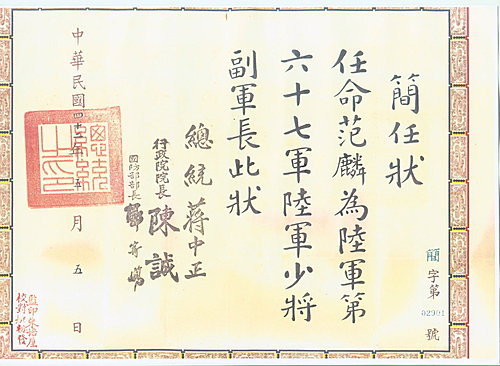 簡字第
號
簡任狀
任命范麟為陸軍第
六十七軍陸軍少將
副軍長此狀
總統 蔣中正
行政院院長 陳誠
國防部部長 郭寄嶠
中華民國四十二年 月 五 日
總統之印
監印
校對